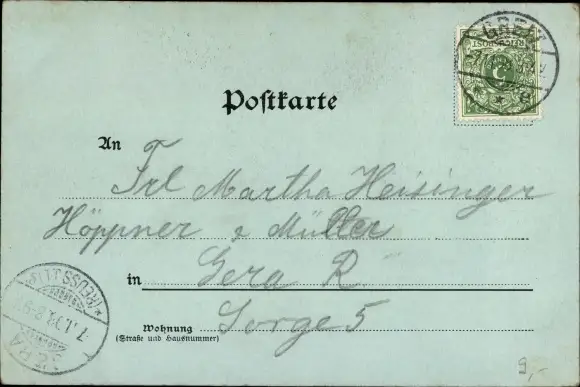 GREIZ
REICHSPOST
5
Postkarte
An
Frl Martha Heisinger
Höppner & Müller
in Gera R.
Wohnung Sorge 5
(Straße und Hausnummer)
GERA
(REUSS J.L.)
9,-